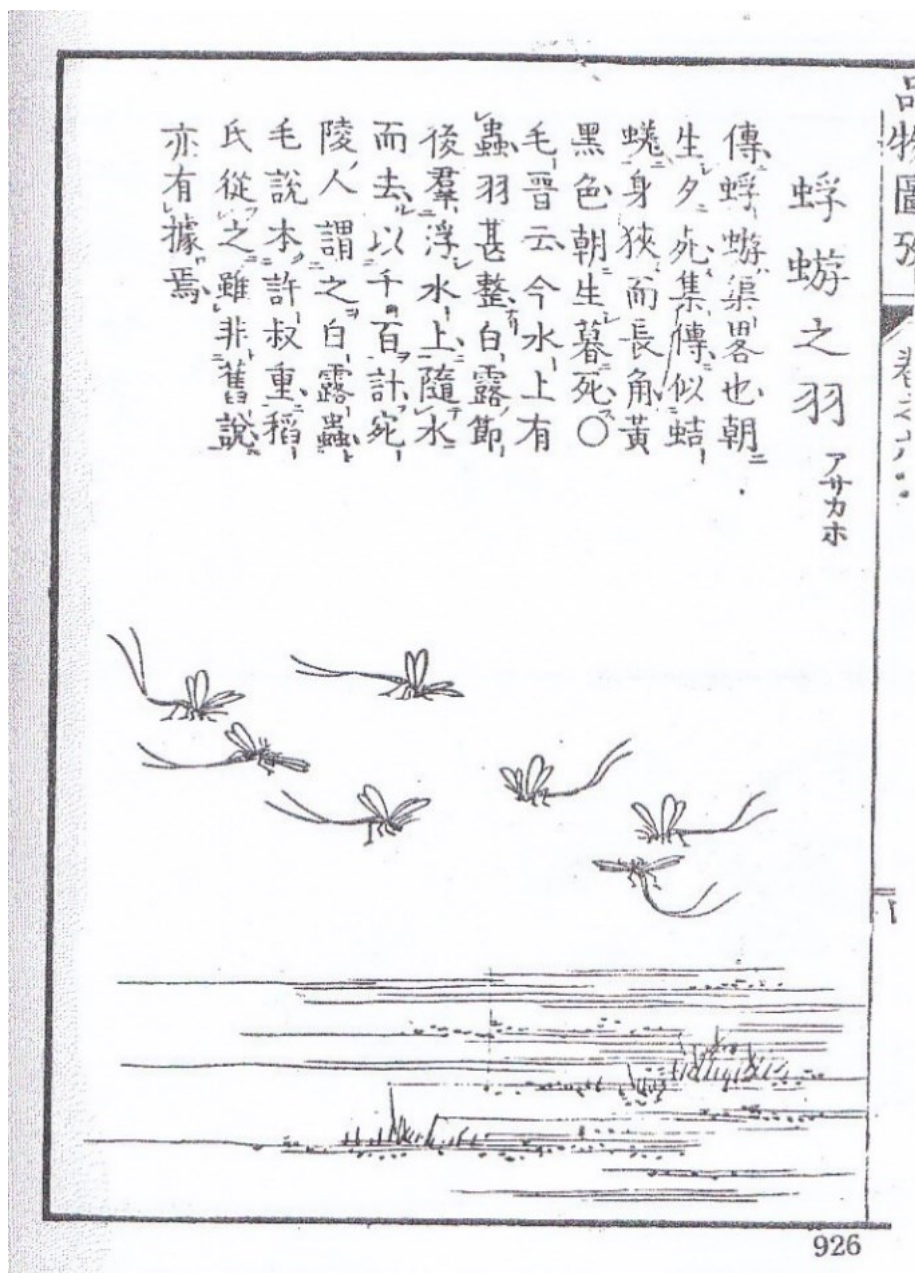 品物圖攷
卷之六
蜉蝣之羽 アサカホ
傳蜉蝣渠畧也朝
生夕死集傳似蛣
蜣身狹而長角黃
黑色朝生暮死〇
毛晋云今水上有
蟲羽甚整白露節
後羣浮水上隨水
而去以千百計宛
陵人謂之白露蟲
毛說本許叔重稻
氏從之雖非舊說
亦有據焉
926